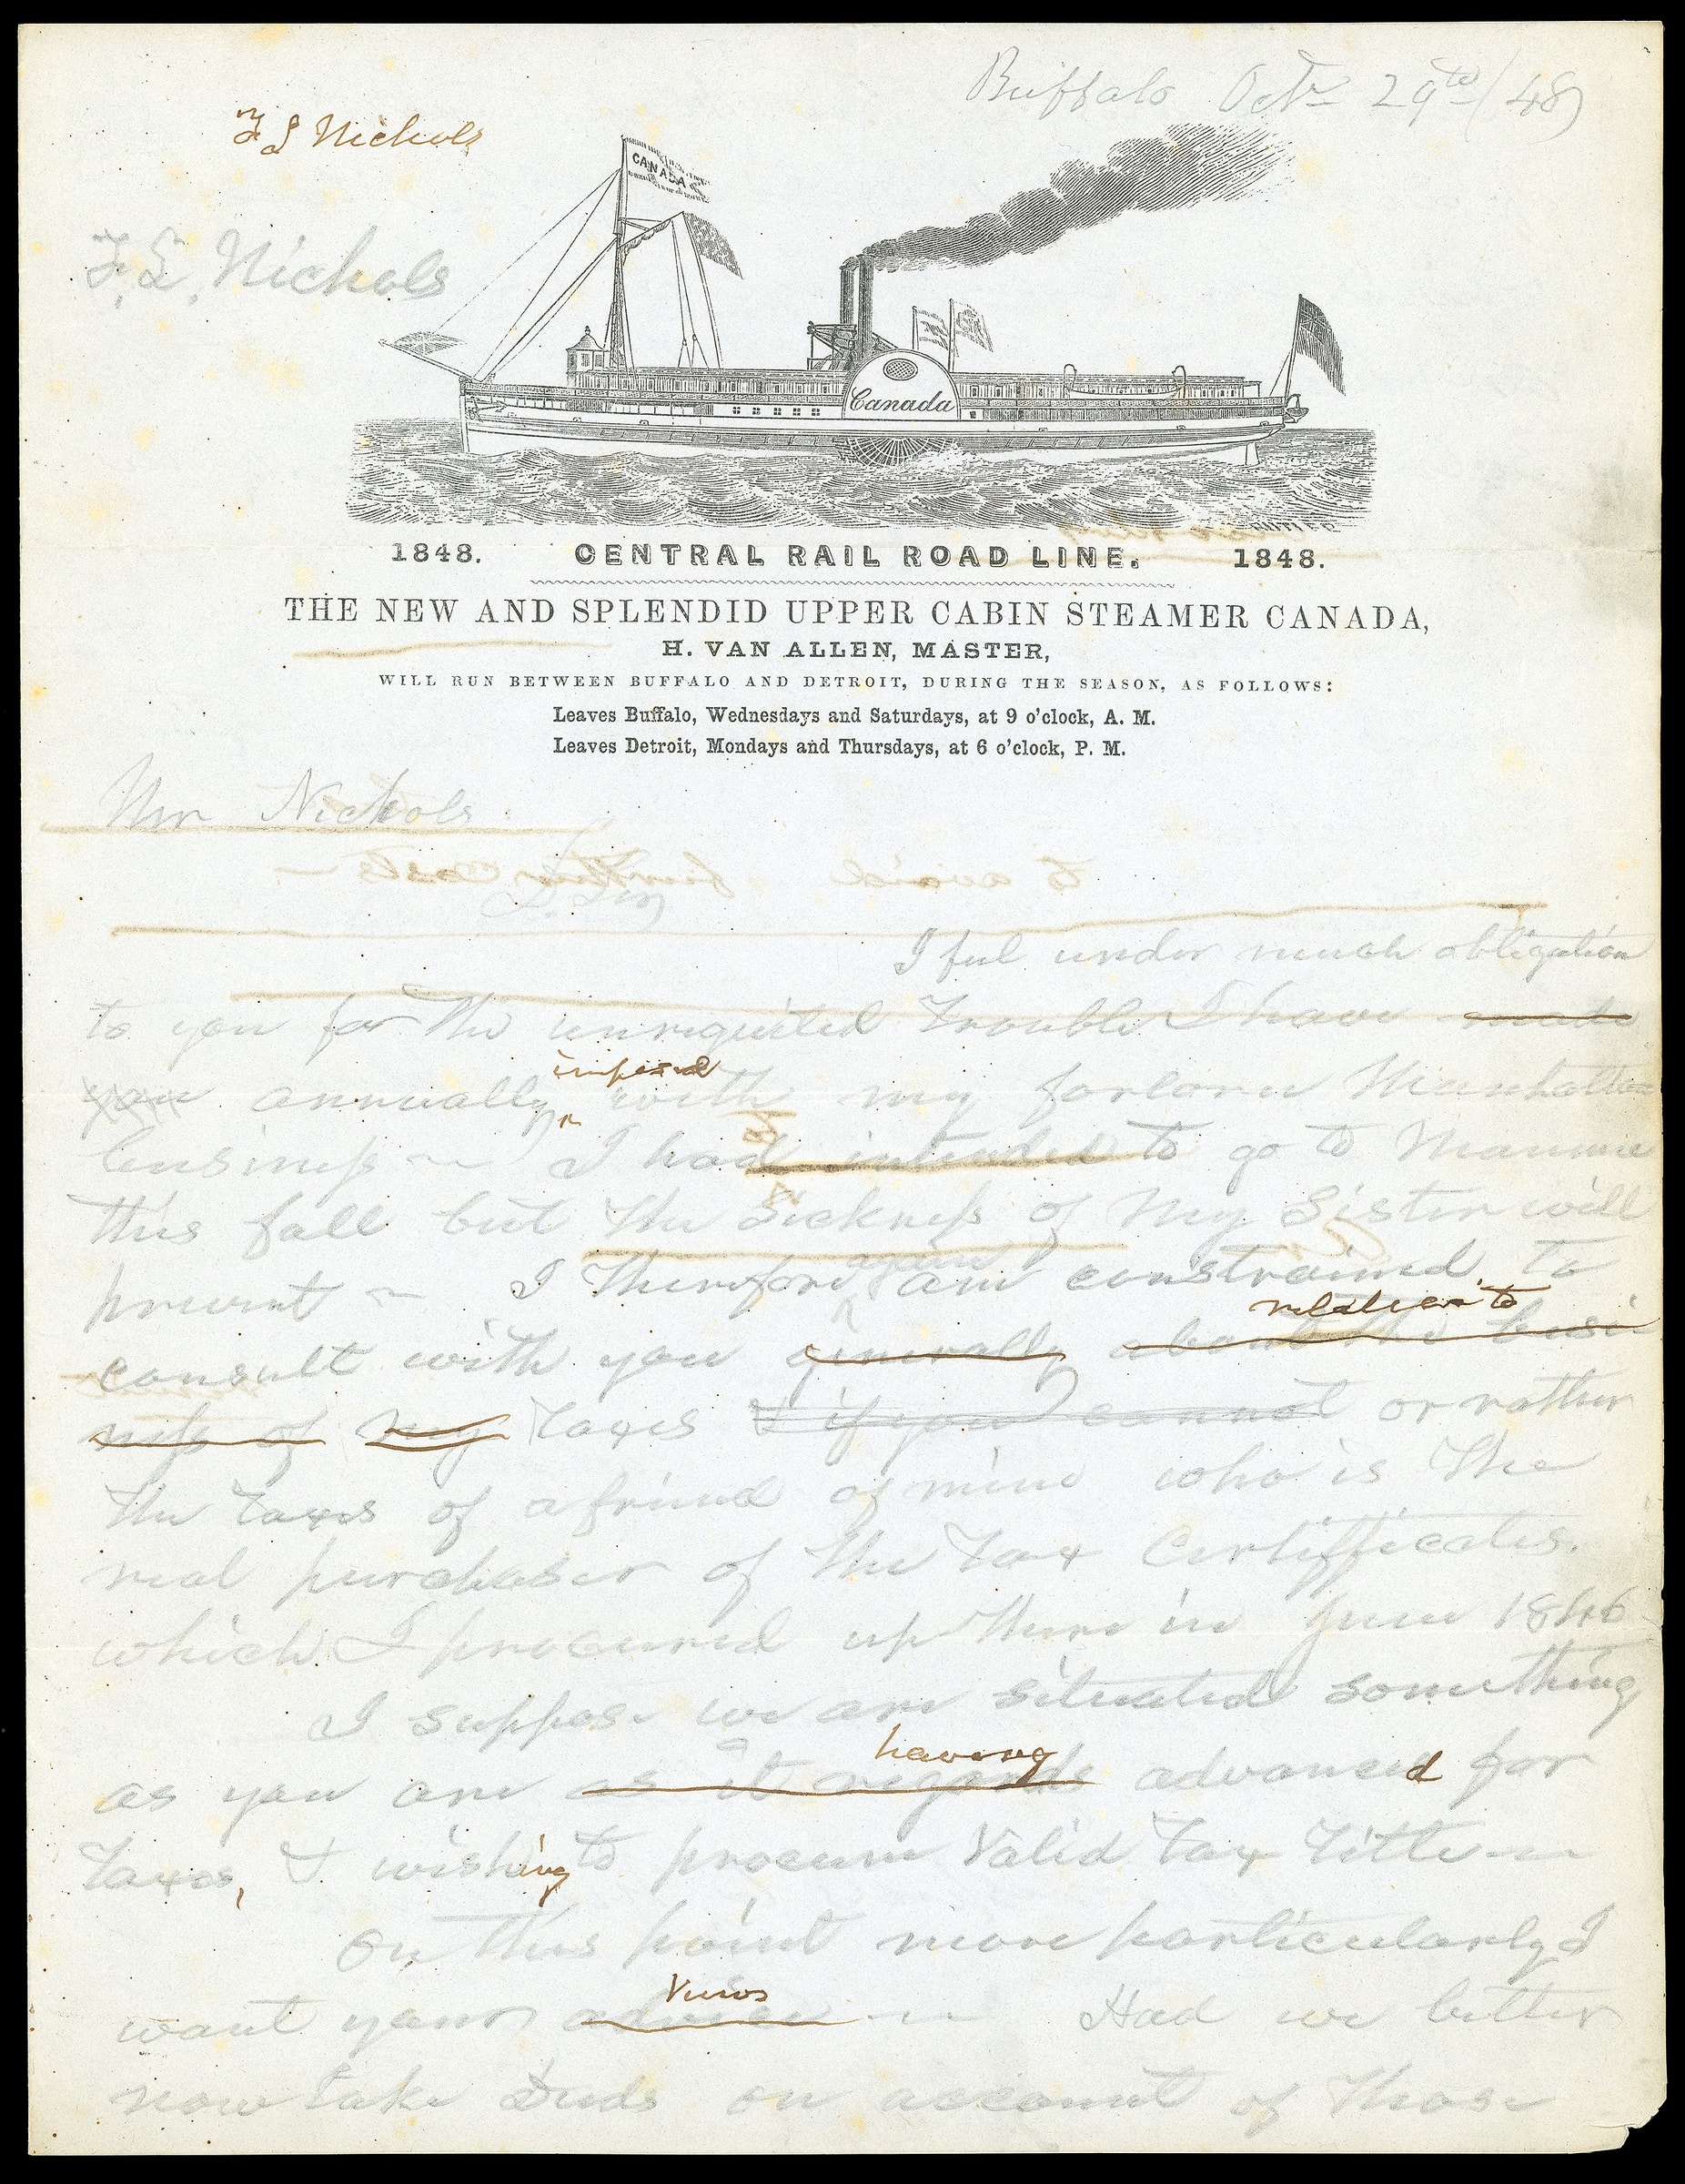 Buffalo Octr 29th (48)
F S Nichols
F. S. Nichols
CANADA
Canada
1848. CENTRAL RAIL ROAD LINE. 1848.
THE NEW AND SPLENDID UPPER CABIN STEAMER CANADA,
H. VAN ALLEN, MASTER,
WILL RUN BETWEEN BUFFALO AND DETROIT, DURING THE SEASON, AS FOLLOWS:
Leaves Buffalo, Wednesdays and Saturdays, at 9 o'clock, A. M.
Leaves Detroit, Mondays and Thursdays, at 6 o'clock, P. M.
Mr Nichols
D. Sir
I feel under much obligation
to you for the unrequited trouble I have made
imposed
you annually with my forlorn Manhattan
business ~ I had intended to go to Maumee
this fall but the sickness of My Sister will
again
prevent ~ I therefore am constrained to
relation to
consult with you generally about the busi
ness of my Taxes & if you cannot or rather
the Taxes of a friend of mine who is the
real purchaser of the Tax Certifficates.
which I procured up there in June 1846
I suppose we are situated something
having
as you are as it regards advanced for
Taxes, & wishing to procure Valid Tax Title
On this point more particularly I
Views
want your advice Had we better
now take Deeds on account of those